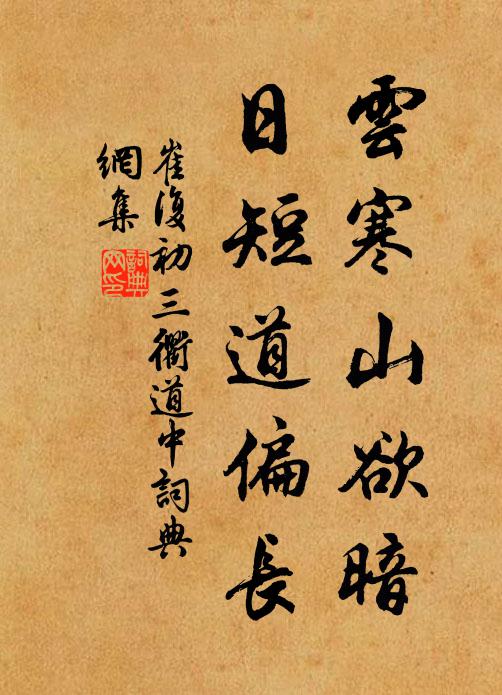 雲寒山欲暗
日短道偏長
崔復初三衢道中詞典
網集
詞典
网印